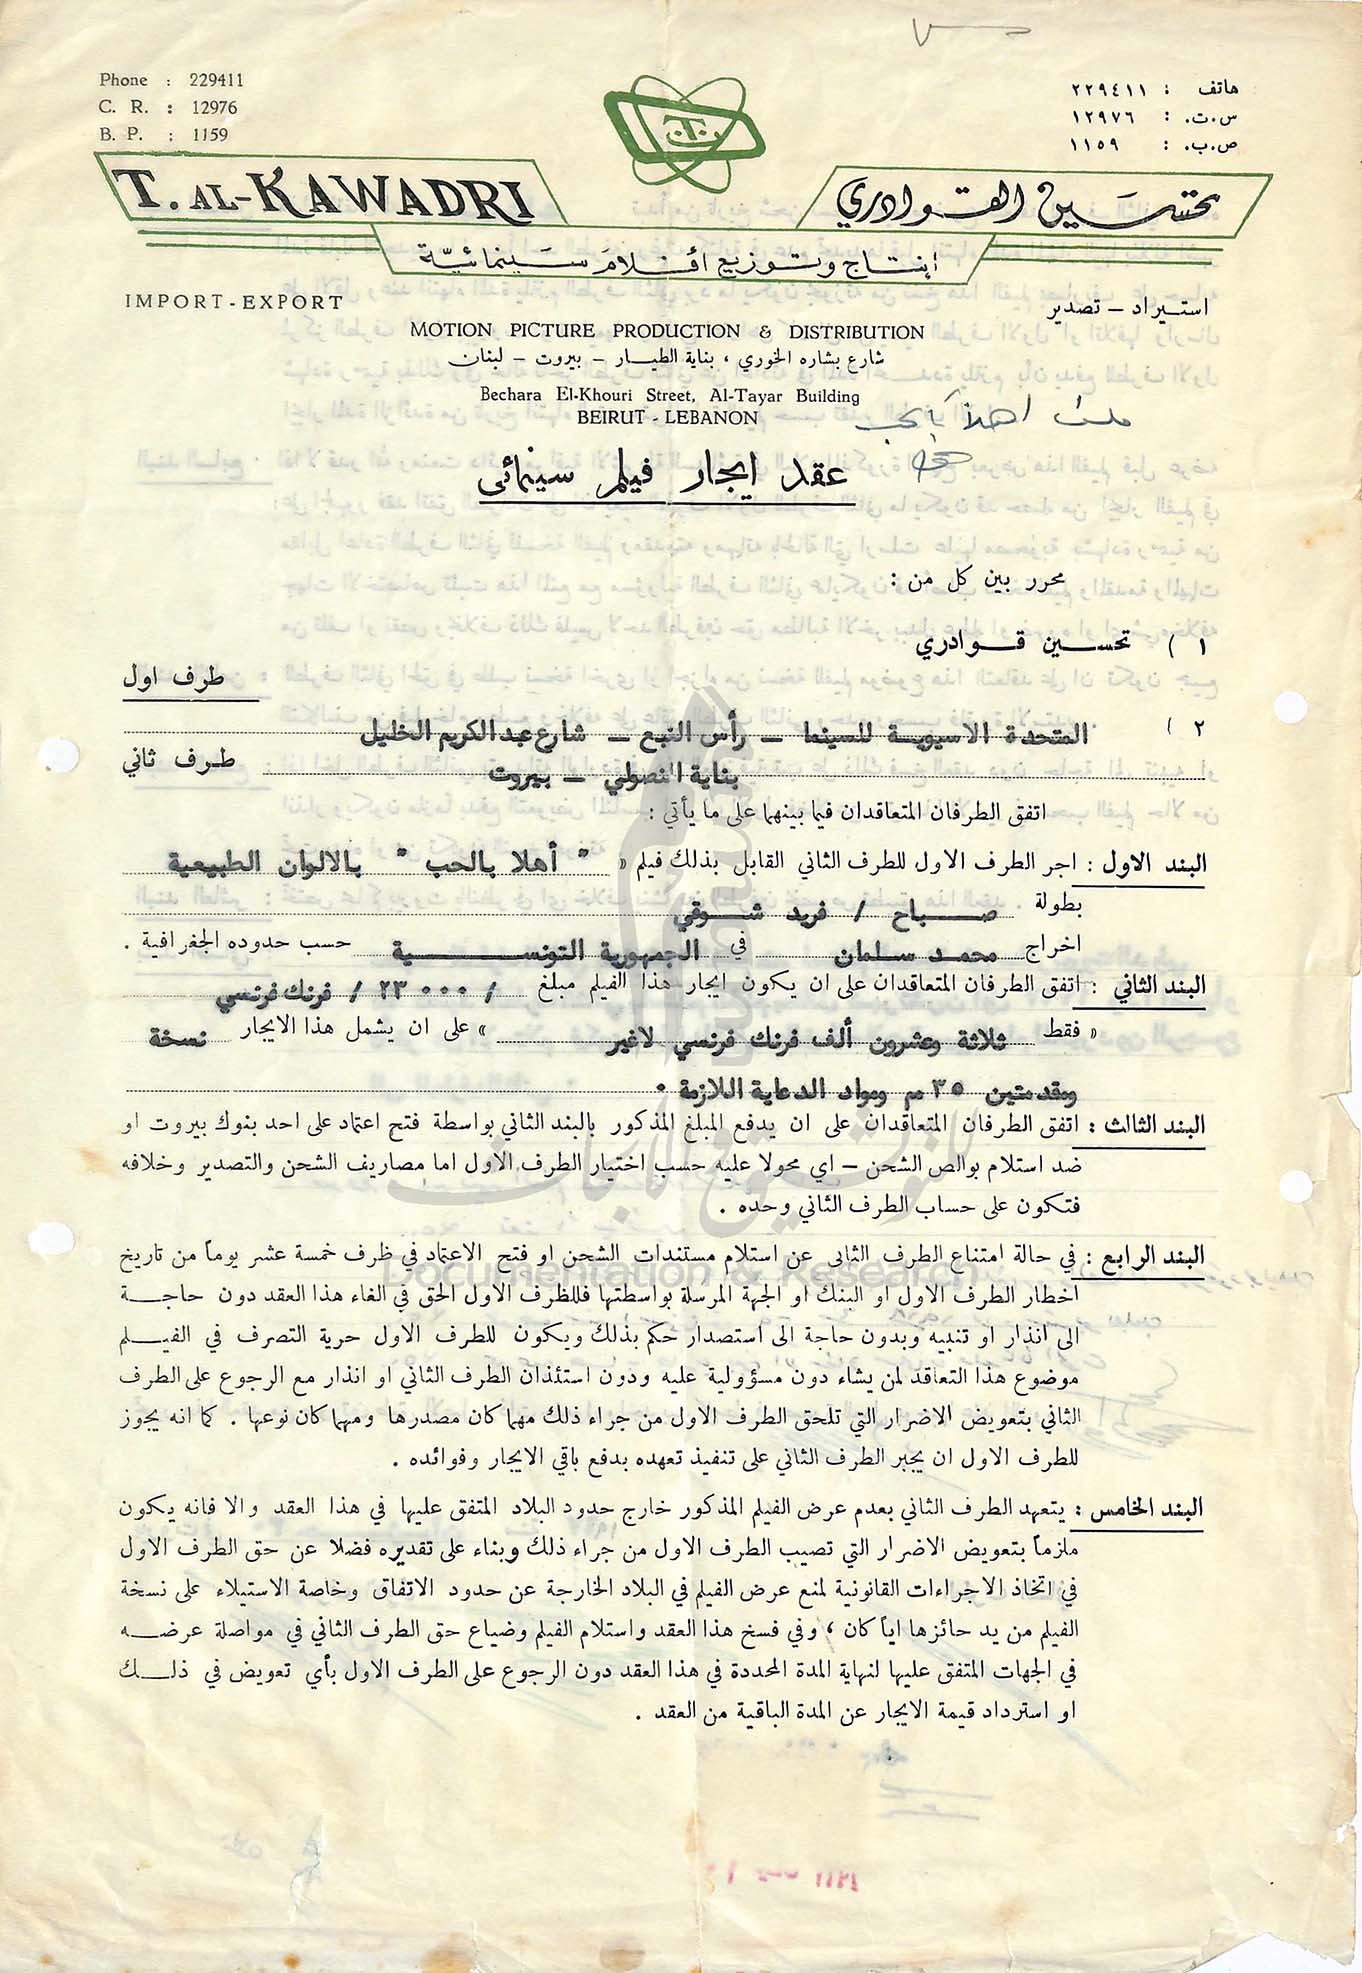 Phone : 229411
C. R. : 12976
B. P. : 1159
هاتف : ٢٢٩٤١١
س.ت. : ١٢٩٧٦
ص.ب. : ١١٥٩
T. AL-KAWADRI
تحسين القوادري
إنتاج وتوزيع أفلام سينمائية
IMPORT - EXPORT
استيراد – تصدير
MOTION PICTURE PRODUCTION & DISTRIBUTION
شارع بشاره الخوري ، بناية الطيار – بيروت – لبنان
Bechara El-Khouri Street, Al-Tayar Building
BEIRUT - LEBANON
ملف اهلاً بالحب
عقد ايجار فيلم سينمائى
محرر بين كل من :
١ ) تحسين قوادري
طرف اول
٢ ) المتحدة الاسيوية للسينما – رأس النبع – شارع عبد الكريم الخليل
بناية النصولي – بيروت طرف ثاني
اتفق الطرفان المتعاقدان فيما بينهما على ما يأتي :
البند الاول : اجر الطرف الاول للطرف الثاني القابل بذلك فيلم « " أهلا بالحب " بالالوان الطبيعية
بطولة صباح / فريد شوقي
اخراج محمد سلمان في الجمهورية التونسية حسب حدوده الجغرافية .
البند الثاني : اتفق الطرفان المتعاقدان على ان يكون ايجار هذا الفيلم مبلغ /٢٣٠٠٠/ فرنك فرنسي
« فقط ثلاثة وعشرون ألف فرنك فرنسي لاغير » على ان يشمل هذا الايجار نسخة
ومقدمتين ٣٥ مم ومواد الدعاية اللازمة .
البند الثالث : اتفق الطرفان المتعاقدان على ان يدفع المبلغ المذكور بالبند الثاني بواسطة فتح اعتماد على احد بنوك بيروت او
ضد استلام بوالص الشحن – اي محولا عليه حسب اختيار الطرف الاول اما مصاريف الشحن والتصدير وخلافه
فتكون على حساب الطرف الثاني وحده .
البند الرابع : في حالة امتناع الطرف الثانى عن استلام مستندات الشحن او فتح الاعتماد في ظرف خمسة عشر يوماً من تاريخ
اخطار الطرف الاول او البنك او الجهة المرسلة بواسطتها فللطرف الاول الحق في الغاء هذا العقد دون حاجة
الى انذار او تنبيه وبدون حاجة الى استصدار حكم بذلك ويكون للطرف الاول حرية التصرف في الفيلم
موضوع هذا التعاقد لمن يشاء دون مسؤولية عليه ودون استئذان الطرف الثاني او انذار مع الرجوع على الطرف
الثاني بتعويض الاضرار التي تلحق الطرف الاول من جراء ذلك مهما كان مصدرها ومهما كان نوعها . كما انه يجوز
للطرف الاول ان يجبر الطرف الثاني على تنفيذ تعهده بدفع باقي الايجار وفوائده .
البند الخامس : يتعهد الطرف الثاني بعدم عرض الفيلم المذكور خارج حدود البلاد المتفق عليها في هذا العقد والا فانه يكون
ملزماً بتعويض الاضرار التي تصيب الطرف الاول من جراء ذلك وبناء على تقديره فضلا عن حق الطرف الاول
في اتخاذ الاجراءات القانونية لمنع عرض الفيلم في البلاد الخارجة عن حدود الاتفاق وخاصة الاستيلاء على نسخة
الفيلم من يد حائزها اياً كان ، وفي فسخ هذا العقد واستلام الفيلم وضياع حق الطرف الثاني في مواصلة عرضه
في الجهات المتفق عليها لنهاية المدة المحددة في هذا العقد دون الرجوع على الطرف الاول بأي تعويض في ذلك
او استرداد قيمة الايجار عن المدة الباقية من العقد .
Documentation & Research